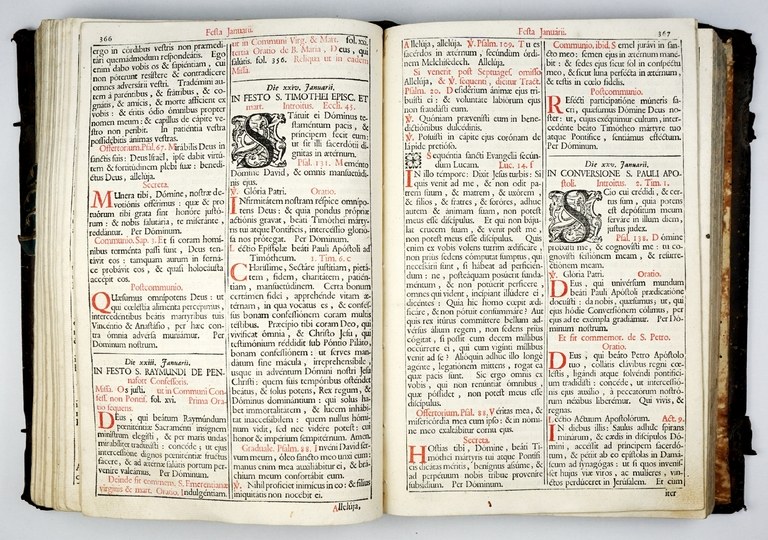 366
Festa Januarii.
ergo in cordibus vestris non præmedi-
tari quemadmodum respondeatis. Ego
enim dabo vobis os & sapientiam, cui
non poterunt resistere & contradicere
omnes adversarii vestri. Trademini au-
tem à parentibus, & fratribus, & co-
gnatis, & amicis, & morte afficient ex
vobis: & eritis ódio ómnibus propter
nomen meum: & capillus de cápite ve-
stro non peribit. In patiéntia vestra
possidébitis ánimas vestras.
Offertorium. Psal. 67. Mirábilis Deus in
sanctis suis: Deus Israël, ipse dabit virtú-
tem & fortitúdinem plebi suæ: benedí-
ctus Deus, allelúja.
Secreta.
MUnera tibi, Dómine, nostræ de-
votiónis offérimus: quæ & pro
tuórum tibi grata sint honóre justó-
rum: & nobis salutária, te miseránte,
reddántur. Per Dóminum.
Communio. Sap. 3. Et si coram homi-
nibus torménta passi sunt, Deus ten-
távit eos: tamquam aurum in forná-
ce probávit eos, & quasi holocáusta
accépit eos.
Postcommunio.
QUæsumus omnípotens Deus: ut
qui cœléstia aliménta percépimus,
intercedéntibus beátis martýribus tuis
Vincéntio & Anastásio, per hæc con-
tra ómnia advérsa muniámur. Per
Dóminum nostrum.
Die xxiii. Januarii.
IN FESTO S. RAYMUNDI DE PEN-
nafort Confessoris.
Missa. Os justi. ut in Communi Con-
fess. non Pontif. fol. xvi. Præter Ora-
tio sequens.
DEus, qui beátum Raymúndum
pœniténtiæ Sacraménti insígnem
minístrum elegísti, & per maris undas
mirabíliter traduxísti: concéde; ut ejus
intercessióne dignos pœniténtiæ fructus
fácere, & ad ætérnæ salútis portum per-
veníre valeámus. Per Dóminum.
Deinde fit commem. S. Emerentianæ
virginis & mart. Oratio. Indulgéntiam.
ut in Communi Virg. & Mart. fol. xxi.
tertia Oratio de B. Maria, Deus, qui
salútis. fol. 356. Reliqua ut in eadem
Missa.
Die xxiv. Januarii.
IN FESTO S. TIMOTHEI EPISC. ET
mart. Introitus. Eccli. 45.
STátuit ei Dóminus te-
staméntum pacis, &
príncipem fecit eum:
ut sit illi sacerdótii di-
gnitas in ætérnum.
Psal. 131. Meménto
Dómine David, & omnis mansuetúdi-
nis ejus.
℣. Glória Patri. Oratio.
INfirmitátem nostram réspice omnípo-
tens Deus: & quia pondus própriæ
actiónis gravat, beáti Timóthei márty-
ris tui atque Pontíficis, intercéssio glorió-
sa nos prótegat. Per Dóminum.
Léctio Epístolæ beáti Pauli Apóstoli ad
Timótheum. 1. Tim. 6. c
CHaríssime, Sectáre justítiam, pietá-
tem, fidem, charitátem, patién-
tiam, mansuetúdinem. Certa bonum
certámen fídei, apprehénde vitam æ-
térnam, in qua vocátus es, & conféssf-
sus bonam confessiónem coram multis
téstibus. Præcípio tibi coram Deo, qui
vivíficat ómnia, & Christo Jesu, qui
testimónium réddidit sub Póntio Piláto,
bonam confessiónem: ut serves man-
dátum sine mácula, irreprehensíbile,
usque in advéntum Dómini nostri Jesu
Christi: quem suis tempóribus osténdet
beátus, & solus potens, Rex regum, &
Dóminus dominántium: qui solus ha-
bet immortalitátem, & lucem inhábi-
tat inaccessíbilem: quem nullus hómi-
num vidit, sed nec vidére potest: cui
honor & impérium sempitérnum. Amen.
Graduale. Psal. 88. Invéni David ser-
vum meum, óleo sancto meo unxi eum:
manus enim mea auxiliábitur ei, & brá-
chium meum confortábit eum.
℣. Nihil profíciet inimícus in eo: & fílius
iniquitátis non nocébit ei.
Allelúja,
Festa Januárii.
367
Allelúja, allelúja. ℣. Psalm. 109. Tu es
sacérdos in ætérnum, secúndum órdi-
nem Melchísedech. Allelúja.
Si venerit post Septuages. omisso
Allelúja, & ℣. sequenti, dicitur Tract.
Psalm. 20. Desidérium ánimæ ejus tri-
buísti ei: & voluntáte labiórum ejus
non fraudásti eum.
℣. Quóniam prævenísti eum in bene-
dictiónibus dulcédinis.
℣. Posuísti in cápite ejus corónam de
lápide pretióso.
✠ Sequéntia sancti Evangélii secún-
dum Lucam. Luc. 14. f
IN illo témpore: Dixit Jesus turbis: Si
quis venit ad me, & non odit pa-
trem suum, & matrem, & uxórem,
& fílios, & fratres, & soróres, adhuc
autem & ánimam suam, non potest
meus esse discípulus. Et qui non báju-
lat crucem suam, & venit post me,
non potest meus esse discípulus. Quis
enim ex vobis volens turrim ædificáre,
non prius sedens cómputat sumptus, qui
necessárii sunt, si hábeat ad perficién-
dum: ne, posteáquam posúerit funda-
méntum, & non potúerit perfícere,
omnes qui vident, incípiant illúdere ei,
dicéntes: Quia hic homo cœpit ædi-
ficáre, & non pótuit consummáre? Aut
quis rex itúrus commíttere bellum ad-
vérsus álium regem, non sedens prius
cógitat, si possit cum decem míllibus
occúrrere ei, qui cum vigínti míllibus
venit ad se? Alióquin adhuc illo longè
agénte, legatiónem mittens, rogat ea
quæ pacis sunt. Sic ergo omnis ex
vobis, qui non renúntiat ómnibus,
quæ póssidet, non potest meus esse
discípulus.
Offertorium. Psal. 88. Véritas mea, &
misericórdia mea cum ipso: & in nómi-
ne meo exaltábitur cornu ejus.
Secreta.
HOstias tibi, Dómine, beáti Ti-
móthei mártyris tui atque Pontífi-
cis dicátas méritis, benígnus assúme, &
ad perpétuum nobis tríbue proveníre
subsídium. Per Dóminum.
Communio. ibid. Semel jurávi in san-
cto meo: semen ejus in ætérnum mané-
bit: & sedes ejus sicut sol in conspéctu
meo, & sicut luna perfécta in ætérnum,
& testis in cœlo fidélis.
Postcommunio.
REfécti participatióne múneris sa-
cri, quæsumus Dómine Deus no-
ster: ut, cujus exéquimur cultum, inter-
cedénte beáto Timótheo mártyre tuo
atque Pontífice, sentiámus efféctum.
Per Dóminum.
Die xxv. Januarii.
IN CONVERSIONE S. PAULI APO-
stoli. Introitus. 2. Tim. 1.
SCio cui crédidi, & cer-
tus sum, quia potens
est depósitum meum
serváre in illum diem,
justus judex.
Psal. 138. Dómine
probásti me, & cognovísti me: tu co-
gnovísti sessiónem meam, & resurre-
ctiónem meam.
℣. Glória Patri. Oratio.
DEus, qui univérsum mundum
beáti Pauli Apóstoli prædicatióne
docuísti: da nobis, quæsumus; ut, qui
ejus hódie Conversiónem cólimus, per
ejus ad te exémpla gradiámur. Per Dó-
minum nostrum.
Et fit commemor. de S. Petro.
Oratio.
DEus, qui beáto Petro Apóstolo
tuo, collátis clávibus regni cœ-
léstis, ligándi atque solvéndi pontifí-
cium tradidísti: concéde, ut intercessió-
nis ejus auxílio, à peccatórum nostró-
rum néxibus liberémur. Qui vivis, &
regnas.
Léctio Actuum Apostolórum. Act. 9.
IN diébus illis: Saulus adhuc spirans
minárum, & cædis in discípulos Dó-
mini, accéssit ad príncipem sacerdó-
tum, & pétiit ab eo epístolas in Damá-
scum ad synagógas: ut si quos invenís-
set hujus viæ viros, ac mulíeres, vin-
ctos perdúceret in Jerúsalem. Et cum
iter